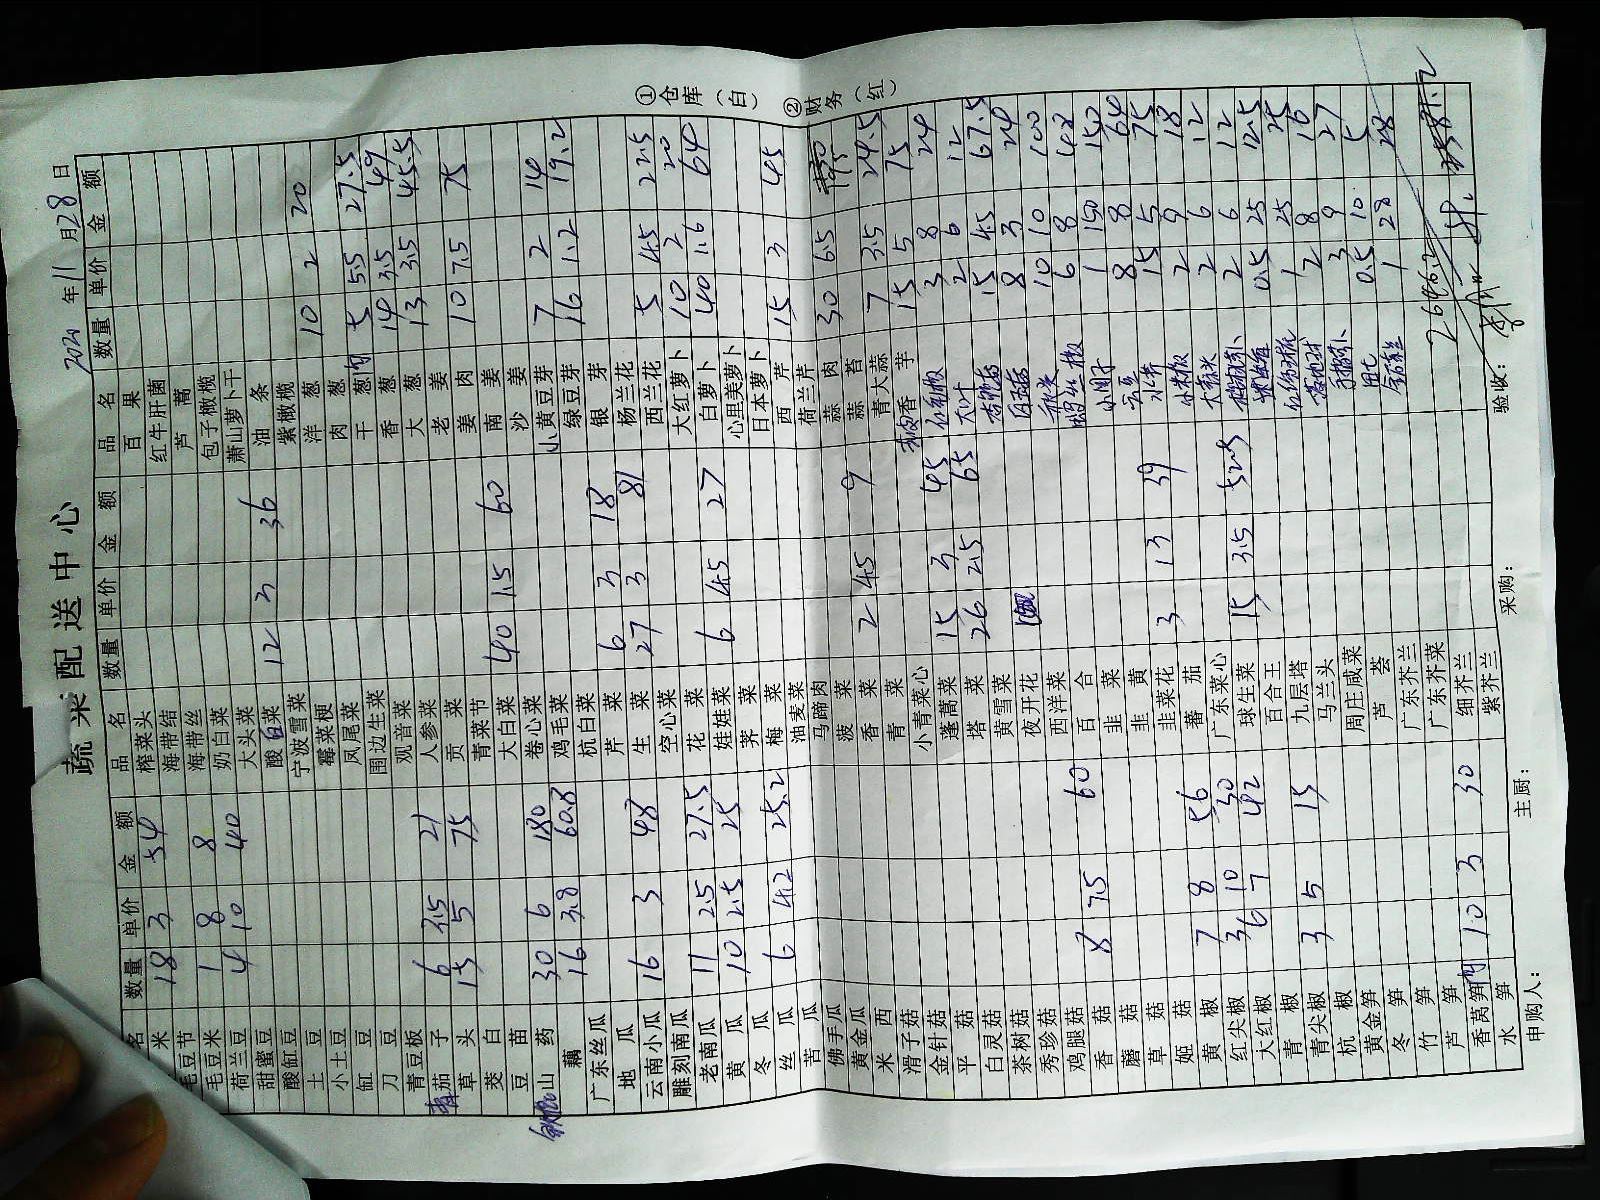 蔬菜配送中心
2020年11月28日
①仓库（白） ②财务（红）
名 数量 单价 金额 品名 数量 单价 金额 品名 数量 单价 金额
米 18 3 54 榨菜头 百果
毛豆节 海带结 红牛肝菌
毛豆米 1 8 8 海带丝 芦蒿
荷兰豆 4 10 40 奶白菜 包子橄榄
甜蜜豆 大头菜 萧山萝卜干
酸豇豆 酸白菜 12 3 36 油条
土豆 宁波雪菜 紫橄榄
小土豆 霉菜梗 洋葱 10 2 20
豇豆 凤尾菜 肉葱
刀豆 围边生菜 干葱肉 5 5.5 27.5
青豆板 观音菜 香葱 14 3.5 49
茄子 6 3.5 21 人参菜 大葱 13 3.5 45.5
草头 15 5 75 贡菜 老姜
茭白 青菜节 姜肉 10 7.5 75
豆苗 大白菜 40 1.5 60 南姜
山药 30 6 180 卷心菜 沙姜
藕 16 3.8 60.8 鸡毛菜 小黄豆芽 7 2 14
广东丝瓜 杭白菜 绿豆芽 16 1.2 19.2
地瓜 芹菜 6 3 18 银芽
云南小瓜 16 3 48 生菜 27 3 81 杨兰花
雕刻南瓜 空心菜 西兰花 5 4.5 22.5
老南瓜 11 2.5 27.5 花菜 大红萝卜 10 2 20
黄瓜 10 2.5 25 娃娃菜 6 4.5 27 白萝卜 40 1.6 64
冬瓜 荠菜 心里美萝卜
丝瓜 6 4.2 25.2 梅菜 日本萝卜
苦瓜 油麦菜 西芹 15 3 45
佛手瓜 马蹄肉 荷兰芹
黄金瓜 菠菜 蒜肉 30 6.5 195
米西 香菜 2 4.5 9 蒜苔
滑子菇 青菜 青大蒜 7 3.5 24.5
金针菇 小青菜心 香芋 15 5 75
平菇 蓬蒿菜 15 3 45 3 8 24
白灵菇 塔菜 26 2.5 65 2 6 12
茶树菇 黄雪菜 15 4.5 67.5
秀珍菇 夜开花 8 3 24
鸡腿菇 西洋菜 10 10 100
香菇 8 7.5 60 百合 6 8 48
蘑菇 韭菜 1 150 150
草菇 韭黄 8 8 64
姬菇 韭菜花 3 13 39 15 5 75
黄椒 7 8 56 蕃茄 小米椒 2 9 18
红尖椒 3 10 30 广东菜心 15 3.5 52.5 2 6 12
大红椒 6 7 42 球生菜 2 6 12
青椒 百合王 0.5 25 12.5
青尖椒 3 5 15 九层塔 1 25 25
杭椒 马兰头 2 8 16
黄金笋 周庄咸菜 3 9 27
冬笋 芦荟 0.5 10 5
竹笋 广东芥兰 1 28 28
芦笋 广东芥菜
香莴笋肉 10 3 30 细芥兰
水笋 紫芥兰
申购人： 主厨： 采购： 验收：